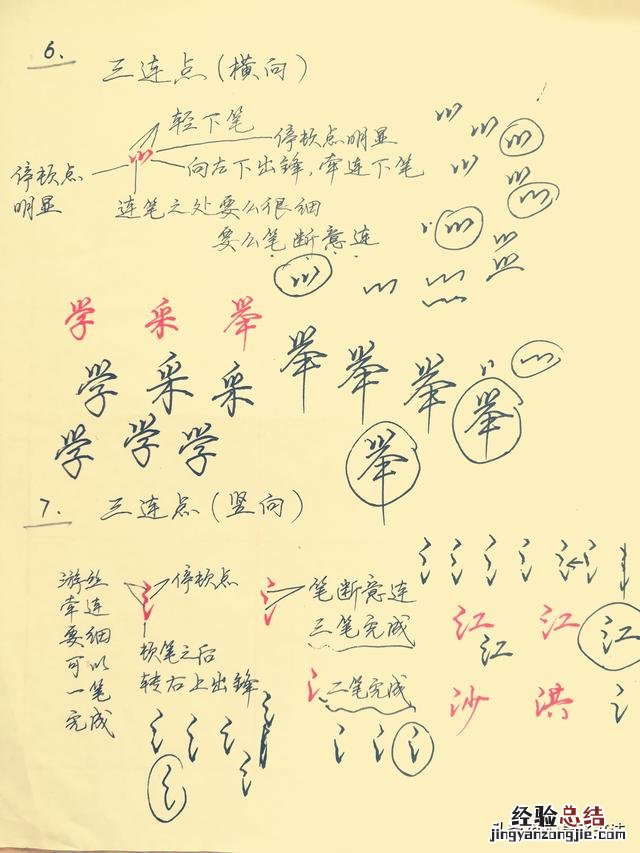 6.
三连点(横向)
轻下笔
停顿点明显
停顿点
明显
向左下出锋,牵连下笔
连笔之处要么很细
要么笔断意连
学 采 举
学 采 采 举 举 举 举
学 学 学 举
7. 三连点(竖向)
游丝
牵连
要细
可以
一笔
完成
停顿点
顿笔之后
转右上出锋
笔断意连
三笔完成
二笔完成
江 江
江 江
沙 洪
经验总结
jingyanzongjie.com